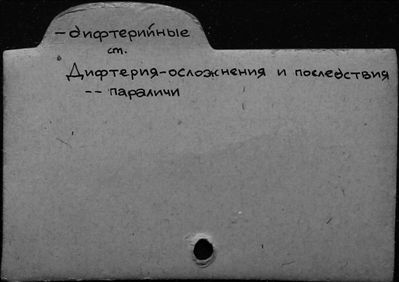 -дифтерийные
ст.
Дифтерия-осложнения и последствия
-- параличи